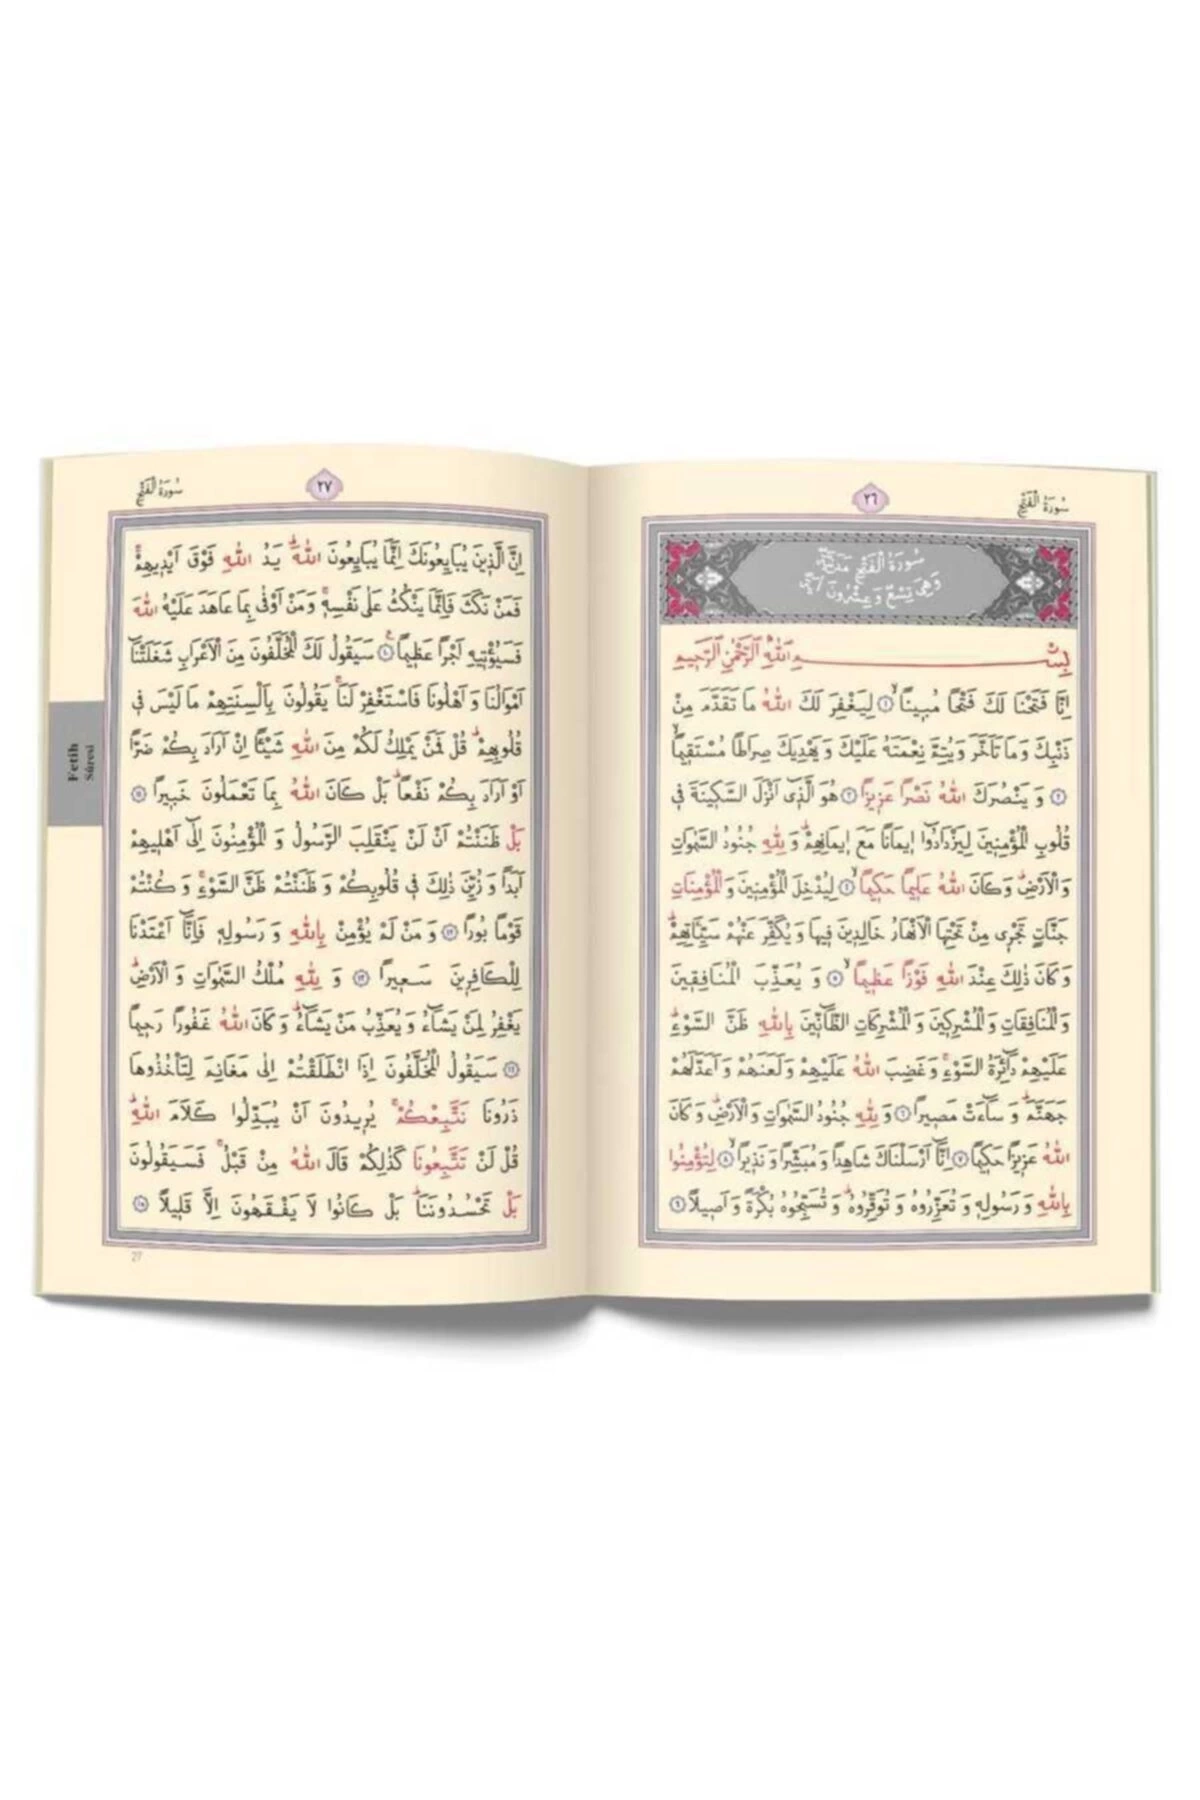 سُورَةُ الْفَتْحِ
٢٦
سُورَةُ الْفَتْحِ مَدَنِيَّةٌ
وَهِيَ تِسْعٌ وَعِشْرُونَ اٰيَةً
بِسْمِ اللّٰهِ الرَّحْمٰنِ الرَّحِيمِ
اِنَّا فَتَحْنَا لَكَ فَتْحًا مُبِينًاۙ ﴿١﴾ لِيَغْفِرَ لَكَ اللّٰهُ مَا تَقَدَّمَ مِنْ
ذَنْبِكَ وَمَا تَاَخَّرَ وَيُتِمَّ نِعْمَتَهُ عَلَيْكَ وَيَهْدِيَكَ صِرَاطًا مُسْتَقِيمًاۙ
﴿٢﴾ وَيَنْصُرَكَ اللّٰهُ نَصْرًا عَزِيزًا ﴿٣﴾ هُوَ الَّذٖٓى اَنْزَلَ السَّكِينَةَ فِى
قُلُوبِ الْمُؤْمِنِينَ لِيَزْدَادُٓوا اِيمَانًا مَعَ اِيمَانِهِمْۜ وَلِلّٰهِ جُنُودُ السَّمٰوَاتِ
وَالْاَرْضِۜ وَكَانَ اللّٰهُ عَلِيمًا حَكِيمًاۙ ﴿٤﴾ لِيُدْخِلَ الْمُؤْمِنِينَ وَالْمُؤْمِنَاتِ
جَنَّاتٍ تَجْرِى مِنْ تَحْتِهَا الْاَنْهَارُ خَالِدِينَ فِيهَا وَيُكَفِّرَ عَنْهُمْ سَيِّـَٔاتِهِمْۜ
وَكَانَ ذٰلِكَ عِنْدَ اللّٰهِ فَوْزًا عَظِيمًاۙ ﴿٥﴾ وَيُعَذِّبَ الْمُنَافِقِينَ
وَالْمُنَافِقَاتِ وَالْمُشْرِكِينَ وَالْمُشْرِكَاتِ الظَّٓانِّينَ بِاللّٰهِ ظَنَّ السَّوْءِۜ
عَلَيْهِمْ دَٓائِرَةُ السَّوْءِۚ وَغَضِبَ اللّٰهُ عَلَيْهِمْ وَلَعَنَهُمْ وَاَعَدَّ لَهُمْ
جَهَنَّمَۜ وَسَٓاءَتْ مَصِيرًا ﴿٦﴾ وَلِلّٰهِ جُنُودُ السَّمٰوَاتِ وَالْاَرْضِۜ وَكَانَ
اللّٰهُ عَزِيزًا حَكِيمًا ﴿٧﴾ اِنَّٓا اَرْسَلْنَاكَ شَاهِدًا وَمُبَشِّرًا وَنَذِيرًاۙ ﴿٨﴾ لِتُؤْمِنُوا
بِاللّٰهِ وَرَسُولِهِ وَتُعَزِّرُوهُ وَتُوَقِّرُوهُۜ وَتُسَبِّحُوهُ بُكْرَةً وَاَصِيلًا ﴿٩﴾
سُورَةُ الْفَتْحِ
٢٧
اِنَّ الَّذِينَ يُبَايِعُونَكَ اِنَّمَا يُبَايِعُونَ اللّٰهَۜ يَدُ اللّٰهِ فَوْقَ اَيْدِيهِمْۚ
فَمَنْ نَكَثَ فَاِنَّمَا يَنْكُثُ عَلٰى نَفْسِهِۚ وَمَنْ اَوْفٰى بِمَا عَاهَدَ عَلَيْهُ اللّٰهَ
فَسَيُؤْتِيهِ اَجْرًا عَظِيمًا ﴿١٠﴾ سَيَقُولُ لَكَ الْمُخَلَّفُونَ مِنَ الْاَعْرَابِ شَغَلَتْنَٓا
اَمْوَالُنَا وَاَهْلُونَا فَاسْتَغْفِرْ لَنَاۚ يَقُولُونَ بِاَلْسِنَتِهِمْ مَا لَيْسَ فِى
قُلُوبِهِمْۜ قُلْ فَمَنْ يَمْلِكُ لَكُمْ مِنَ اللّٰهِ شَيْـًٔا اِنْ اَرَادَ بِكُمْ ضَرًّا
اَوْ اَرَادَ بِكُمْ نَفْعًاۜ بَلْ كَانَ اللّٰهُ بِمَا تَعْمَلُونَ خَبِيرًا ﴿١١﴾
بَلْ ظَنَنْتُمْ اَنْ لَنْ يَنْقَلِبَ الرَّسُولُ وَالْمُؤْمِنُونَ اِلٰٓى اَهْلِيهِمْ
اَبَدًا وَزُيِّنَ ذٰلِكَ فِى قُلُوبِكُمْ وَظَنَنْتُمْ ظَنَّ السَّوْءِۚ وَكُنْتُمْ
قَوْمًا بُورًا ﴿١٢﴾ وَمَنْ لَمْ يُؤْمِنْ بِاللّٰهِ وَرَسُولِهِ فَاِنَّٓا اَعْتَدْنَا
لِلْكَافِرِينَ سَعِيرًا ﴿١٣﴾ وَلِلّٰهِ مُلْكُ السَّمٰوَاتِ وَالْاَرْضِۜ
يَغْفِرُ لِمَنْ يَشَٓاءُ وَيُعَذِّبُ مَنْ يَشَٓاءُۜ وَكَانَ اللّٰهُ غَفُورًا رَحِيمًا
﴿١٤﴾ سَيَقُولُ الْمُخَلَّفُونَ اِذَا انْطَلَقْتُمْ اِلٰى مَغَانِمَ لِتَأْخُذُوهَا
ذَرُونَا نَتَّبِعْكُمْۚ يُرِيدُونَ اَنْ يُبَدِّلُوا كَلَامَ اللّٰهِۜ
قُلْ لَنْ تَتَّبِعُونَا كَذٰلِكُمْ قَالَ اللّٰهُ مِنْ قَبْلُۚ فَسَيَقُولُونَ
بَلْ تَحْسُدُونَنَاۜ بَلْ كَانُوا لَا يَفْقَهُونَ اِلَّا قَلِيلًا ﴿١٥﴾
27
Fetih
Sûresi